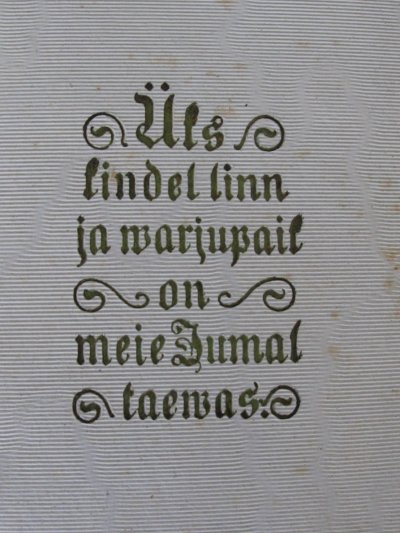 Üks
kindel linn
ja warjupaik
on
meie Jumal
taewas.